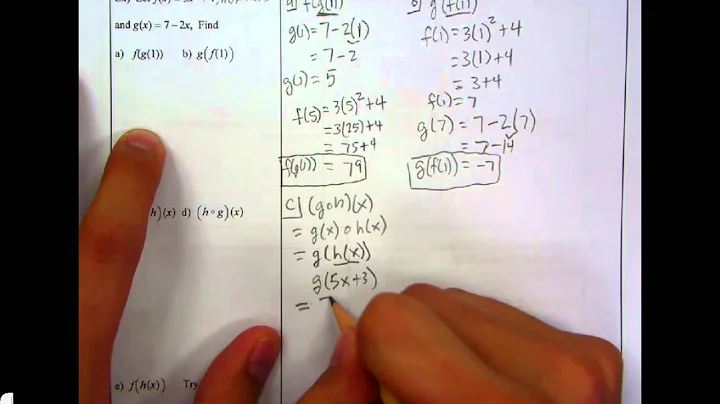 and g(x) = 7 − 2x, Find
a) f(g(1)) b) g(f(1))
h)(x) d) (h ∘ g)(x)
e) f(h(x)) Try
f(g(1))
g(1) = 7-2(1)
= 7-2
g(1) = 5
f(5) = 3(5)² + 4
= 3(25) + 4
= 75+4
f(g(1)) = 79
g(f(1))
f(1) = 3(1)² + 4
= 3(1) + 4
= 3+4
f(1) = 7
g(7) = 7-2(7)
= 7-14
g(f(1)) = -7
c) (g∘h)(x)
= g(x) ∘ h(x)
= g(h(x))
g(5x+3)
=